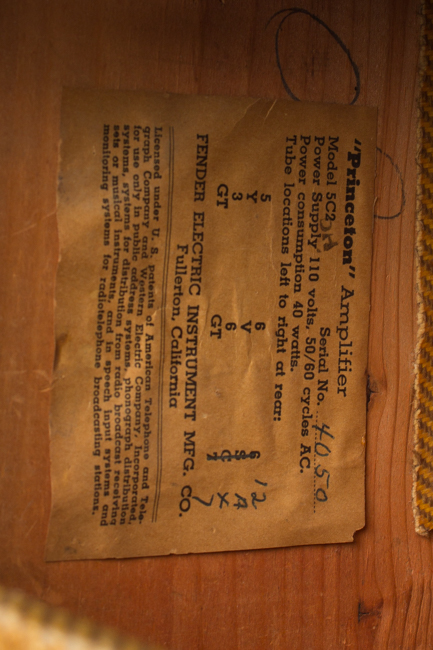 "Princeton" Amplifier
Model 5C2 Serial No. 4050
Power Supply 110 volts, 50/60 cycles AC.
Power consumption 40 watts.
Tube locations left to right at rear:
5 6 6 12
Y V S A
3 6 C X
GT GT 7 7
FENDER ELECTRIC INSTRUMENT MFG. CO.
Fullerton, California
Licensed under U. S. patents of American Telephone and Tele-
graph Company and Western Electric Company, Incorporated,
for use only in public address systems, phonograph distribution
systems, systems for distribution from radio broadcast receiving
sets or musical instruments, and in speech input systems and
monitoring systems for radiotelephone broadcasting stations.